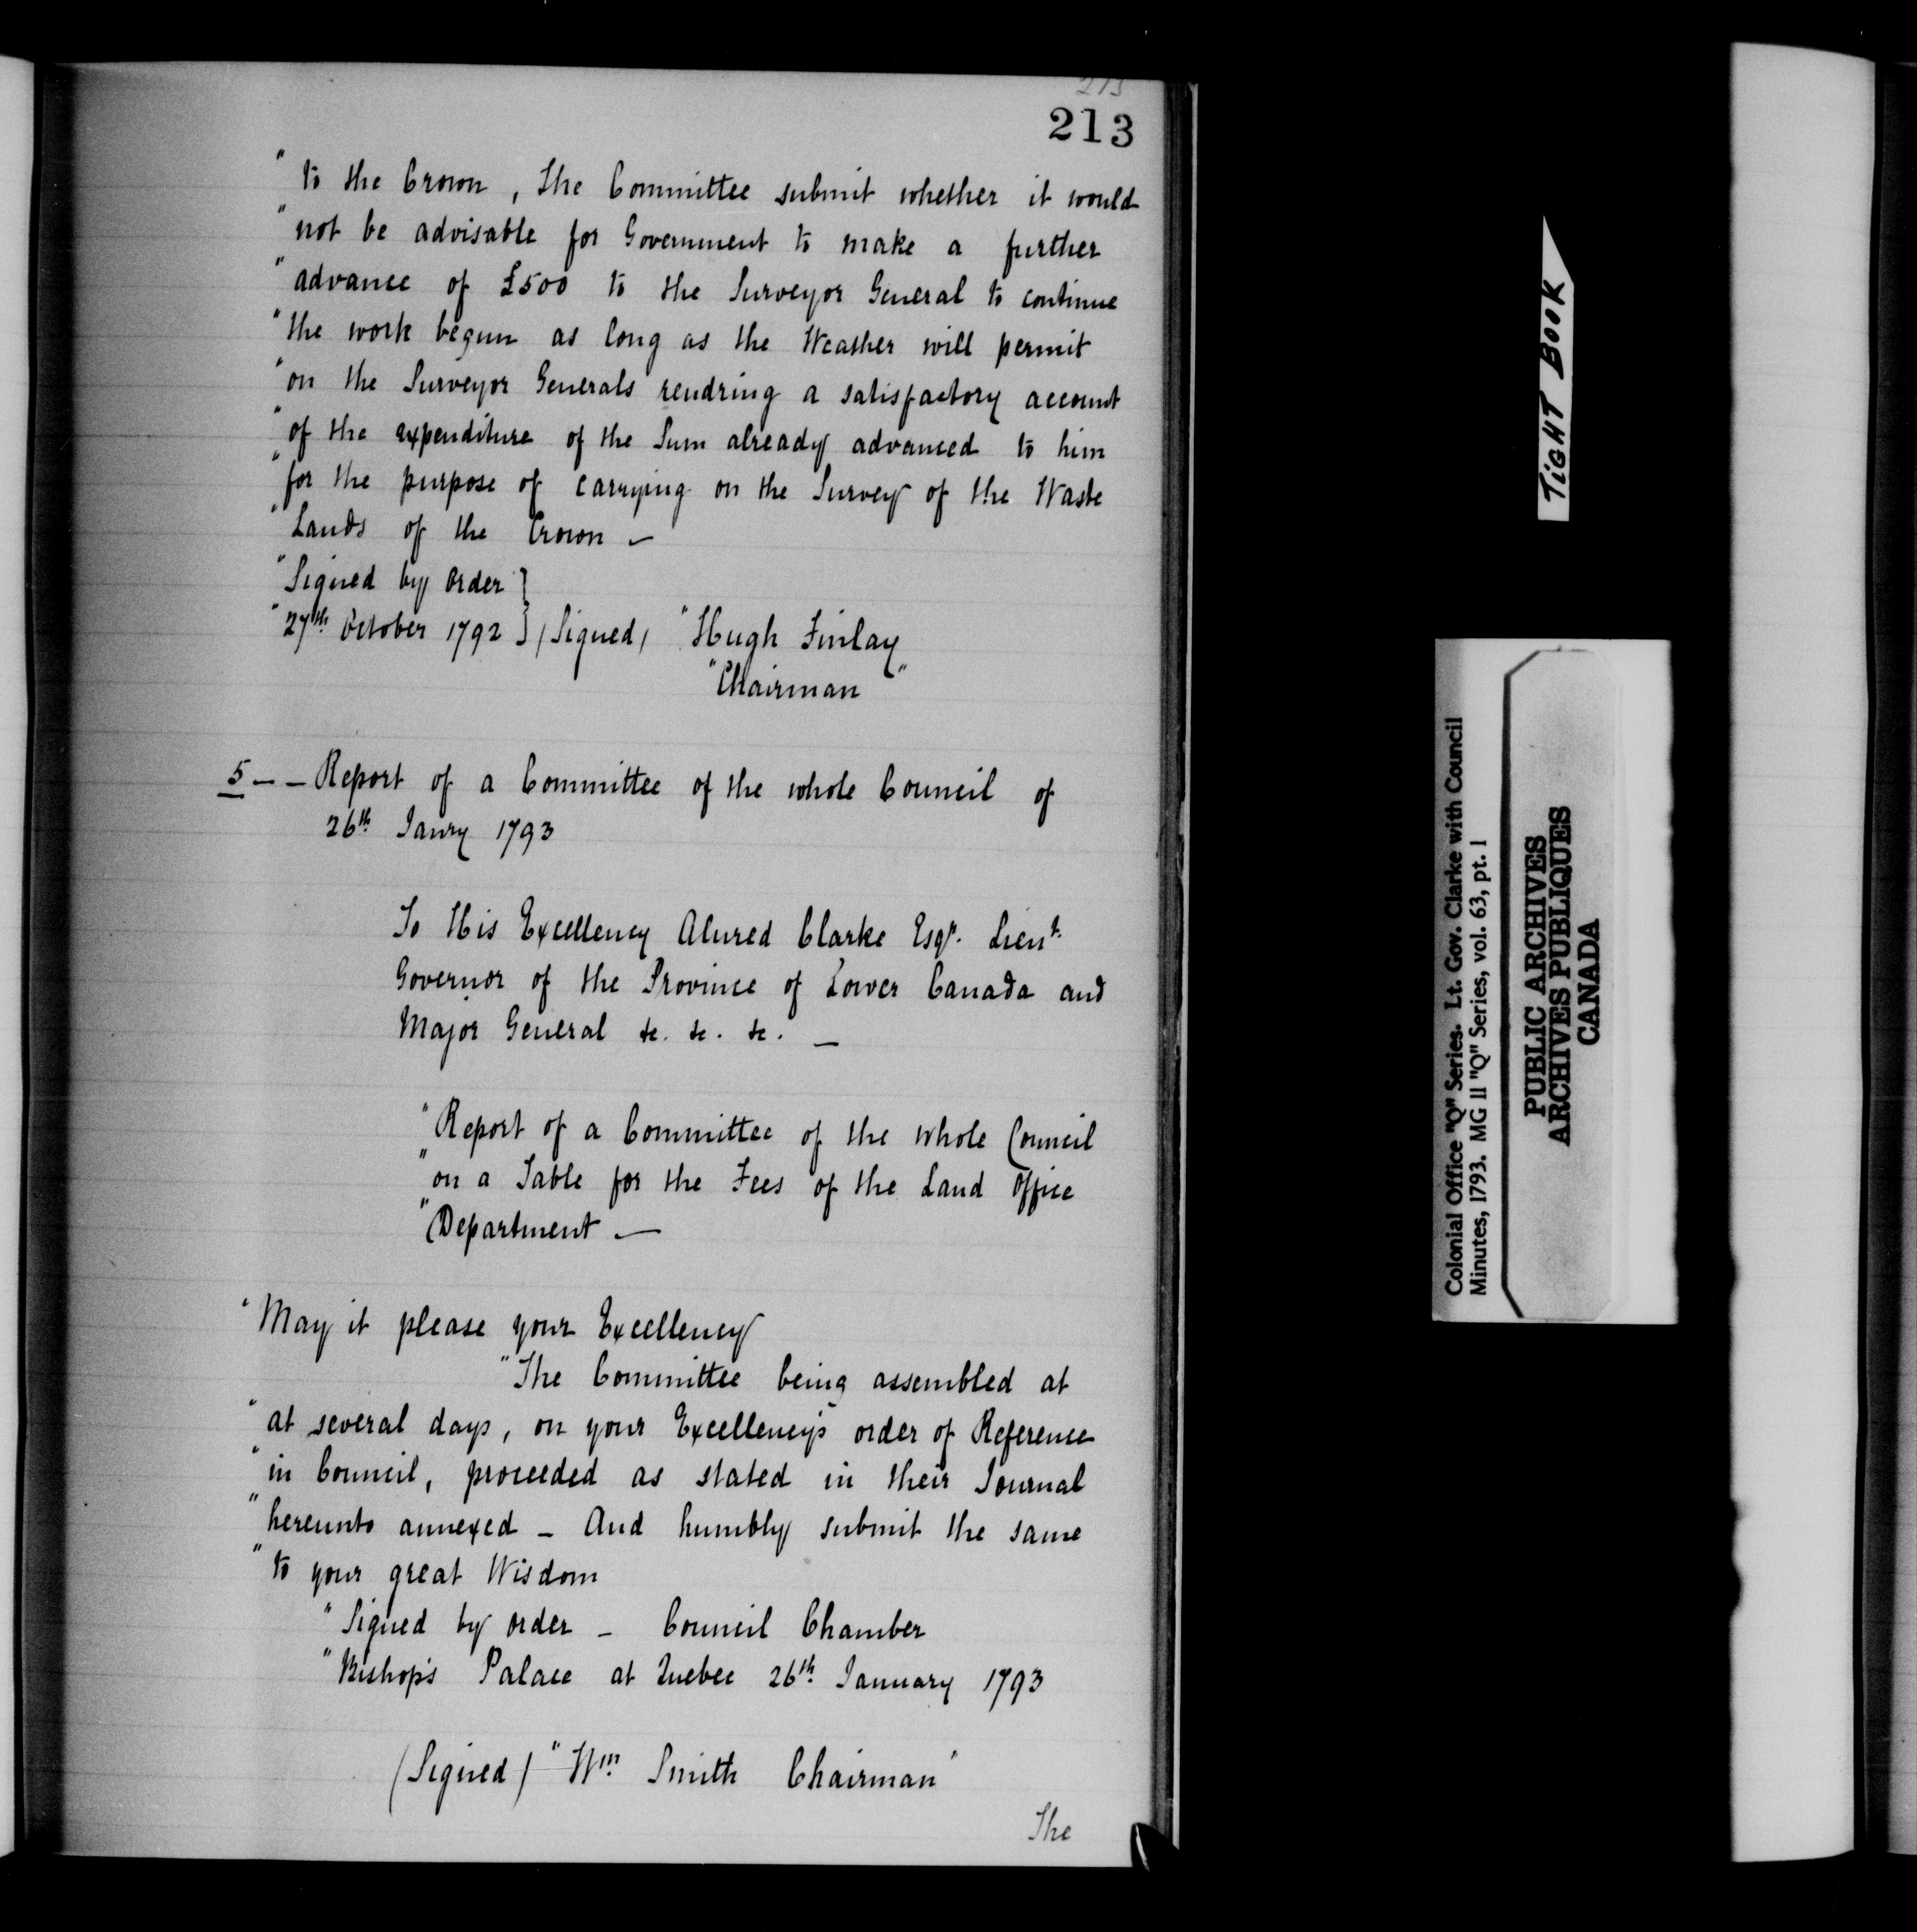 213
213
"to the Crown, The Committee submit whether it would
"not be advisable for Government to make a further
"advance of £500 to the Surveyor General to continue
"the work begun as long as the Weather will permit
"on the Surveyor Generals rendring a satisfactory account
"of the expenditure of the Sum already advanced to him
"for the purpose of carrying on the Survey of the Waste
"Lands of the Crown —
"Signed by Order }
"27th October 1792 } (Signed) "Hugh Finlay
"Chairman"
5 — — Report of a Committee of the whole Council of
26th Janry 1793
To His Excellency Alured Clarke Esqr. Lieut.
Governor of the Province of Lower Canada and
Major General &c. &c. &c. —
"Report of a Committee of the whole Council
"on a Table for the Fees of the Land Office
"Department —
"May it please your Excellency
"The Committee being assembled at
"at several days, on your Excellency's order of Reference
"in Council, proceeded as stated in their Journal
"hereunto annexed — And humbly submit the same
"to your great Wisdom
"Signed by order — Council Chamber
"Bishop's Palace at Quebec 26th January 1793
(Signed) "Wm Smith Chairman"
The
TIGHT BOOK
Colonial Office "Q" Series. Lt. Gov. Clarke with Council
Minutes, 1793. MG 11 "Q" Series, vol. 63, pt. 1
PUBLIC ARCHIVES
ARCHIVES PUBLIQUES
CANADA